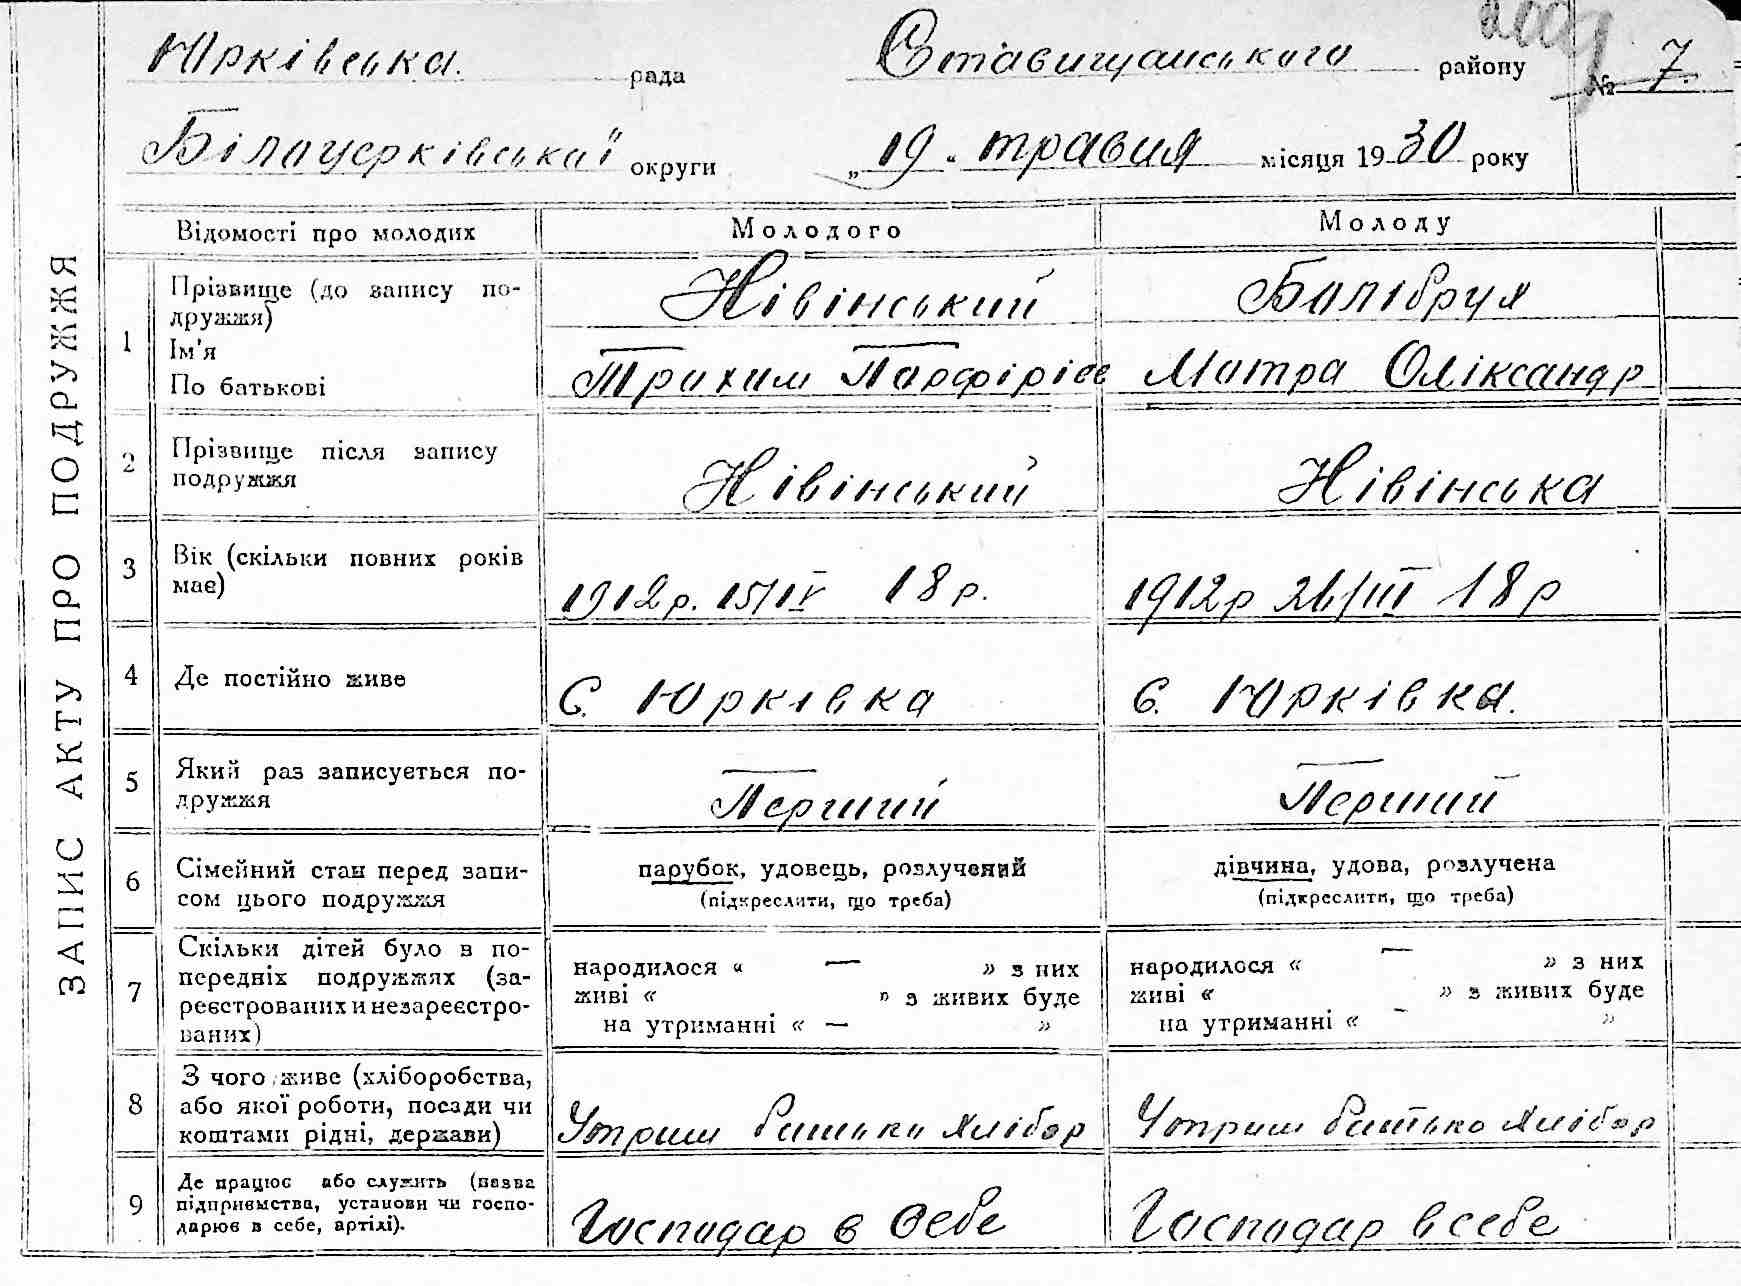 Юрківська рада Ставищанського району № 7.
Білацерківської округи „19" травня місяця 1930 року
ЗАПИС АКТУ ПРО ПОДРУЖЖЯ
Відомості про молодих Молодого Молоду
1 Прізвище (до запису по- Нівінський Балібруя
дружжя)
Ім'я
По батькові Трихим Парфіріев Матра Оліксандр
2 Прізвище після запису
подружжя Нівінський Нівінська
3 Вік (скільки повних років
має) 1912р. 15/IV 18 р. 1912р 26/III 18 р
4 Де постійно живе С. Юрківка С. Юрківка.
5 Який раз записується по-
дружжя Перший Перший
6 Сімейний стан перед запи- парубок, удовець, розлучений дівчина, удова, розлучена
сом цього подружжя (підкреслити, що треба) (підкреслити, що треба)
7 Скільки дітей було в по-
передніх подружжях (за- народилося « — » з них народилося « — » з них
реєстрованих и незареєстро- живі « » з живих буде живі « » з живих буде
ваних) на утриманні « — » на утриманні « - »
8 З чого живе (хліборобства,
або якої роботи, посади чи
коштами рідні, держави) Утрим батьки хлібор Утрим батько хлібор
9 Де працює або служить (назва
підприємства, установи чи госпо-
дарює в себе, артілі). Господар в себе Господар в себе